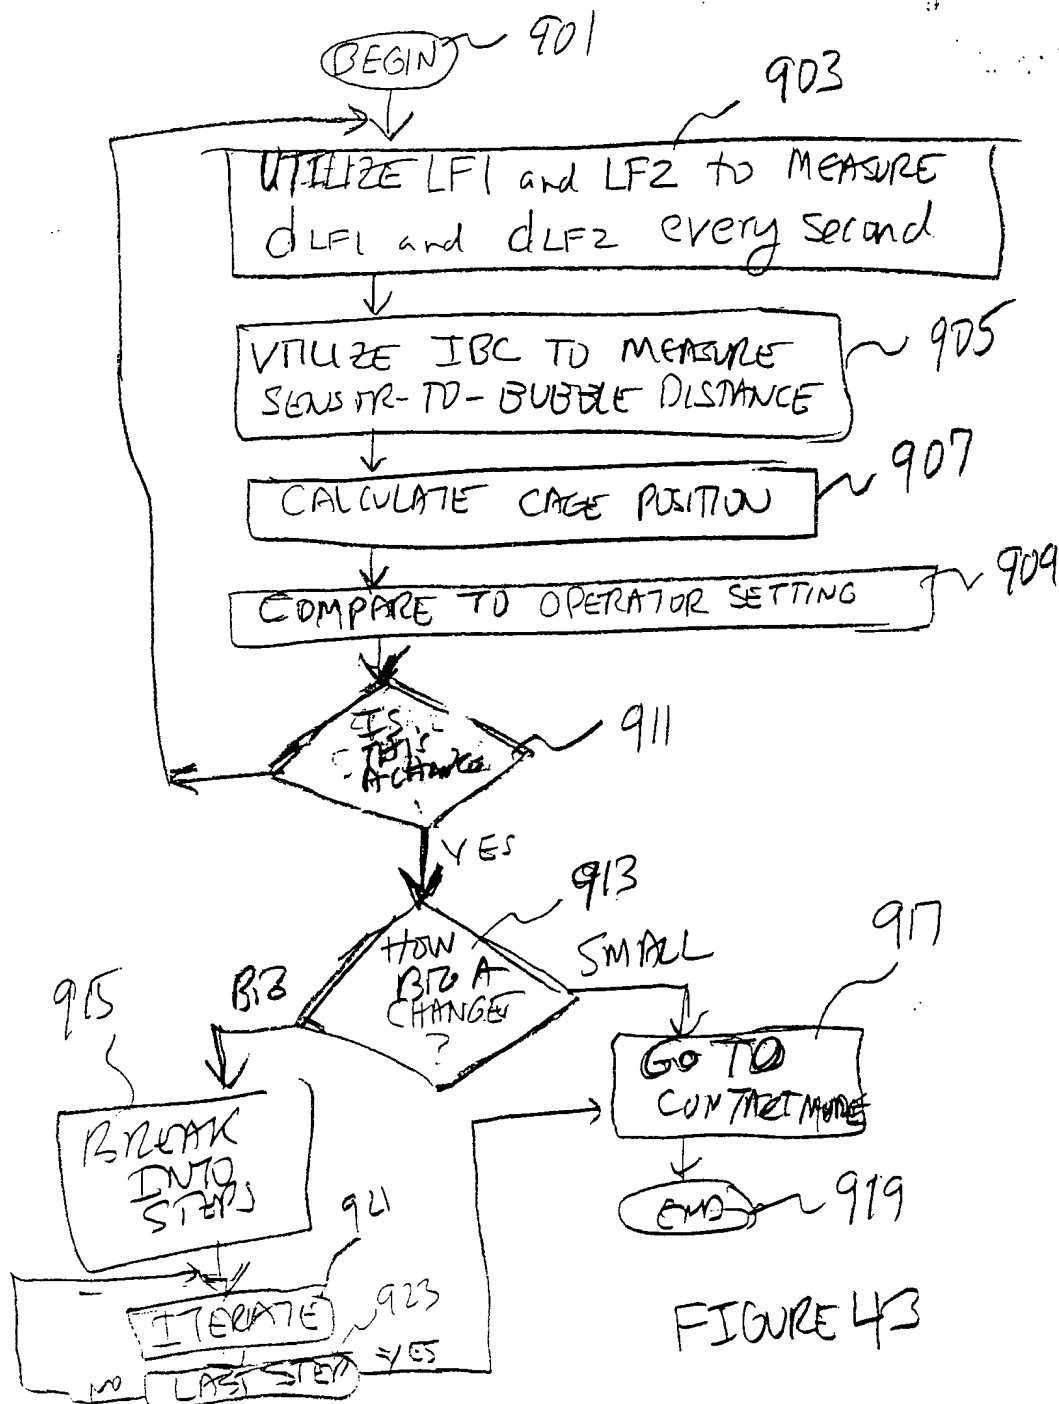 BEGIN 901
903
UTILIZE LF1 and LF2 to MEASURE
dLF1 and dLF2 every second
UTILIZE IBC TO MEASURE
SENSOR-TO-BUBBLE DISTANCE
905
CALCULATE CAGE POSITION
907
COMPARE TO OPERATOR SETTING
909
IS
THIS
A CHANGE
911
YES
913
HOW
BIG A
CHANGE
?
BIG
SMALL
915
917
GO TO
CONTACT MODE
BREAK
INTO
STEPS
END
919
921
ITERATE
923
LAST STEP
NO
YES
FIGURE 43